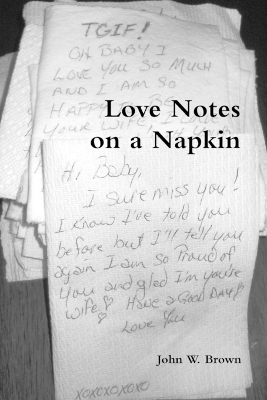 TGIF!
OH BABY I
LOVE YOU SO MUCH
AND I AM SO
HAPPY
YOUR WIFE, I
Love Notes
on a Napkin
Hi, Baby,
I sure miss you!
I know I've told you
before but I'll tell you
again I am so Proud of
you and glad I'm your
wife ♡ Have a Good Day!
Love You
John W. Brown
xoxoxoxoxo